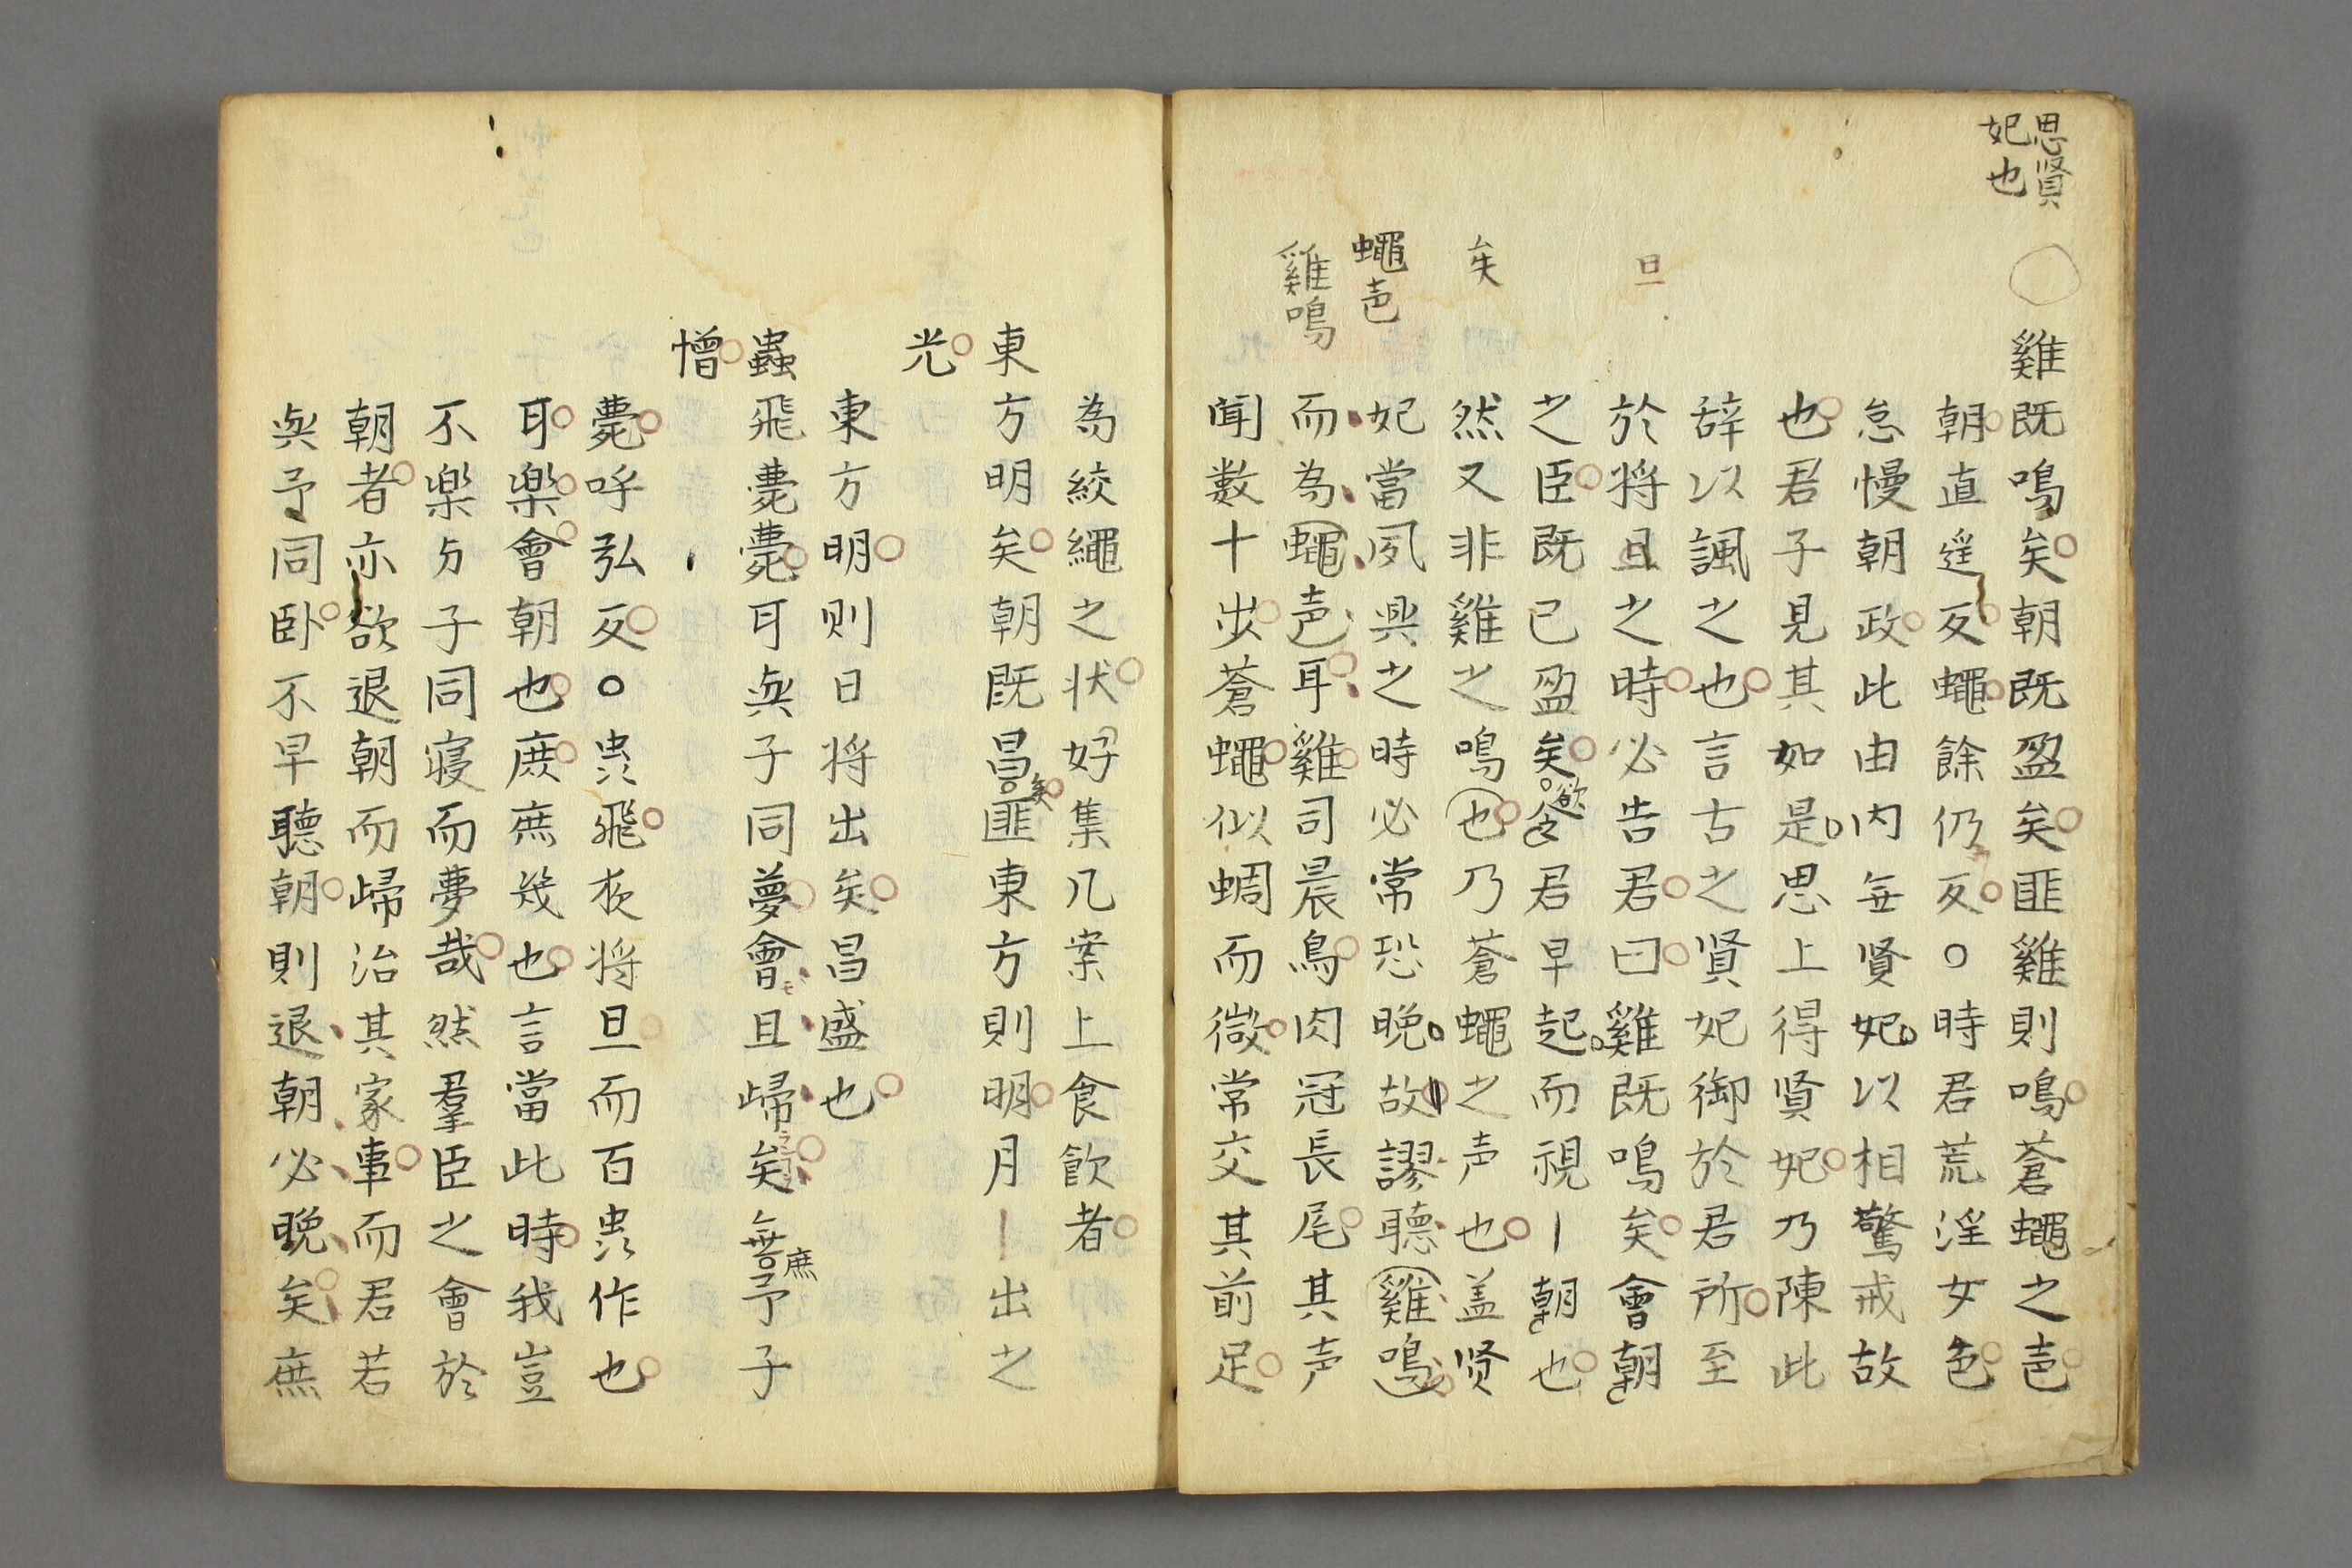 思賢
妃也
雞既鳴矣朝既盈矣匪雞則鳴蒼蠅之声
朝直遥反蠅餘仍反○時君荒淫女色
怠慢朝政此由内無賢妃以相驚戒故
也君子見其如是思上得賢妃乃陳此
辞以諷之也言古之賢妃御於君所至
旦
於将旦之時必告君曰雞既鳴矣會朝
之臣既已盈矣欲令君早起而視丨朝也
矣
然又非雞之鳴也乃蒼蠅之声也盖贤
蠅声
妃當夙興之時必常恐晩故謬聽雞鳴
雞鳴
而為蠅声耳雞司晨鳥肉冠長尾其声
闻数十步蒼蠅似蜩而微常交其前足
為絞繩之状好集几案上食飲者
東方明矣朝既昌矣匪東方則明月丨出之
光
東方明則日将出矣昌盛也
蟲飛薨薨甘與子同夢會且歸矣無庶予子
憎
薨呼弘反○虫飛夜将旦而百虫作也
甘樂會朝也庶庶幾也言當此時我豈
不楽与子同寝而夢哉然羣臣之會於
朝者亦欲退朝而歸治其家事而君若
與予同卧不早聽朝則退朝必晩矣庶